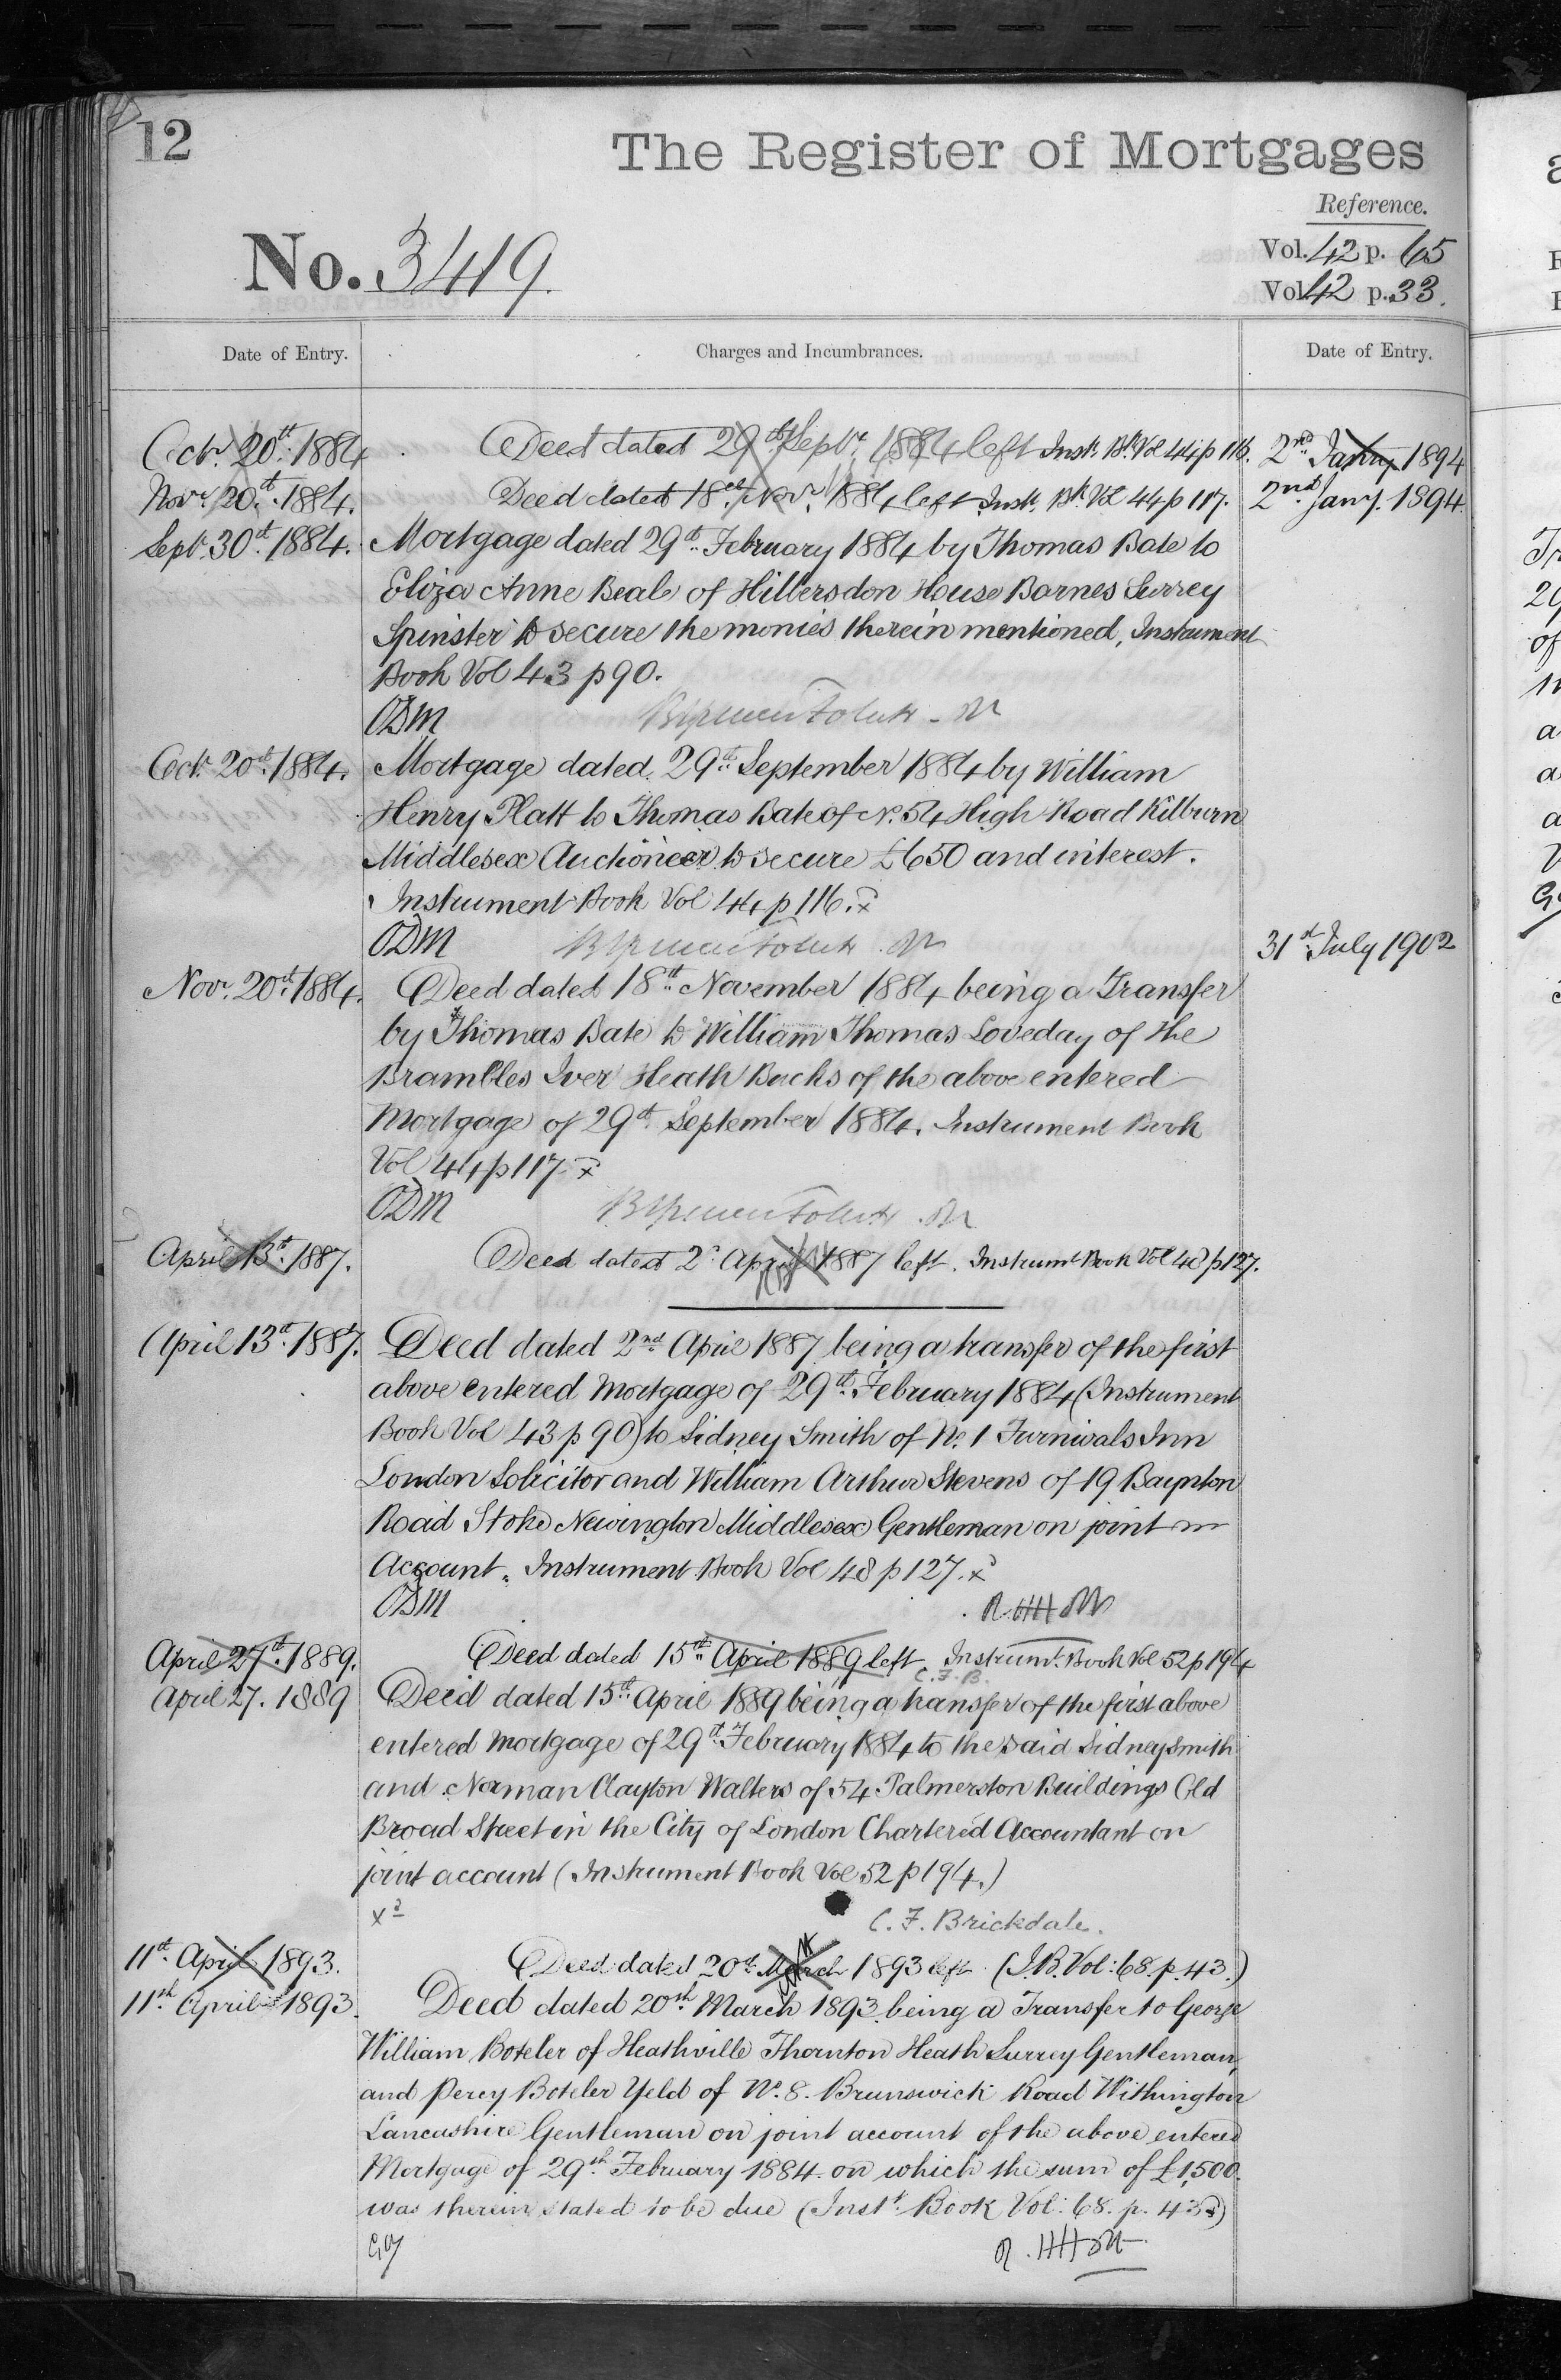 12
The Register of Mortgages
Reference.
No. 3419.
Vol. 42 p. 65
Vol. 42 p. 33.
Date of Entry.
Charges and Incumbrances.
Date of Entry.
Octr. 20th. 1884 Deed dated 29th Septr. 1884 left Instt. Bk. Vol 44 p 116. 2nd Jany. 1894
Novr. 20th. 1884. Deed dated 18th Novr. 1884 left Instt. Bk. Vol 44 p 117. 2nd Jany. 1894.
Sept. 30th. 1884. Mortgage dated 29th. February 1884 by Thomas Bate to
Eliza Anne Beale of Hillersdon House Barnes Surrey
Spinster to secure the monies therein mentioned, Instrument
Book Vol 43 p 90.
ODM
Oct. 20th. 1884. Mortgage dated 29th. September 1884 by William
Henry Platt to Thomas Bate of No. 54 High Road Kilburn
Middlesex Auctioneer to secure £650 and interest.
Instrument Book Vol 44 p 116. x
ODM
31st July 1902
Nov. 20th. 1884. Deed dated 18th. November 1884 being a Transfer
by Thomas Bate to William Thomas Loveday of the
Brambles Iver Heath Bucks of the above entered
Mortgage of 29th. September 1884. Instrument Book
Vol 44 p 117. x
ODM
April 13th. 1887. Deed dated 2d April 1887 left. Instrumt Book Vol 48 p 127.
April 13th. 1887. Deed dated 2nd. April 1887 being a transfer of the first
above entered Mortgage of 29th. February 1884 (Instrument
Book Vol 43 p 90) to Sidney Smith of No. 1 Furnivals Inn
London Solicitor and William Arthur Stevens of 19 Baynton
Road Stoke Newington Middlesex Gentleman on joint
Account. Instrument Book Vol 48 p 127. x
ODM
April 27th. 1889. Deed dated 15th. April 1889 left Instrumt. Book Vol 52 p 194
C.F.B.
April 27. 1889 Deed dated 15th. April 1889 being a transfer of the first above
entered Mortgage of 29th. February 1884 to the said Sidney Smith
and Norman Clayton Walters of 54 Palmerston Buildings Old
Broad Street in the City of London Chartered Accountant on
joint account (Instrument Book Vol 52 p 194.)
x
C. F. Brickdale.
11th. April 1893. Deed dated 20th. March 1893 left (I.B. Vol: 68. p. 43.)
11th April 1893. Deed dated 20th March 1893 being a Transfer to George
William Boteler of Heathville Thornton Heath Surrey Gentleman,
and Percy Boteler Yeld of No. 8. Brunswick Road Withington
Lancashire Gentleman on joint account of the above entered
Mortgage of 29th. February 1884 on which the sum of £1,500.
was therein stated to be due (Instt. Book Vol: 68. p. 43)